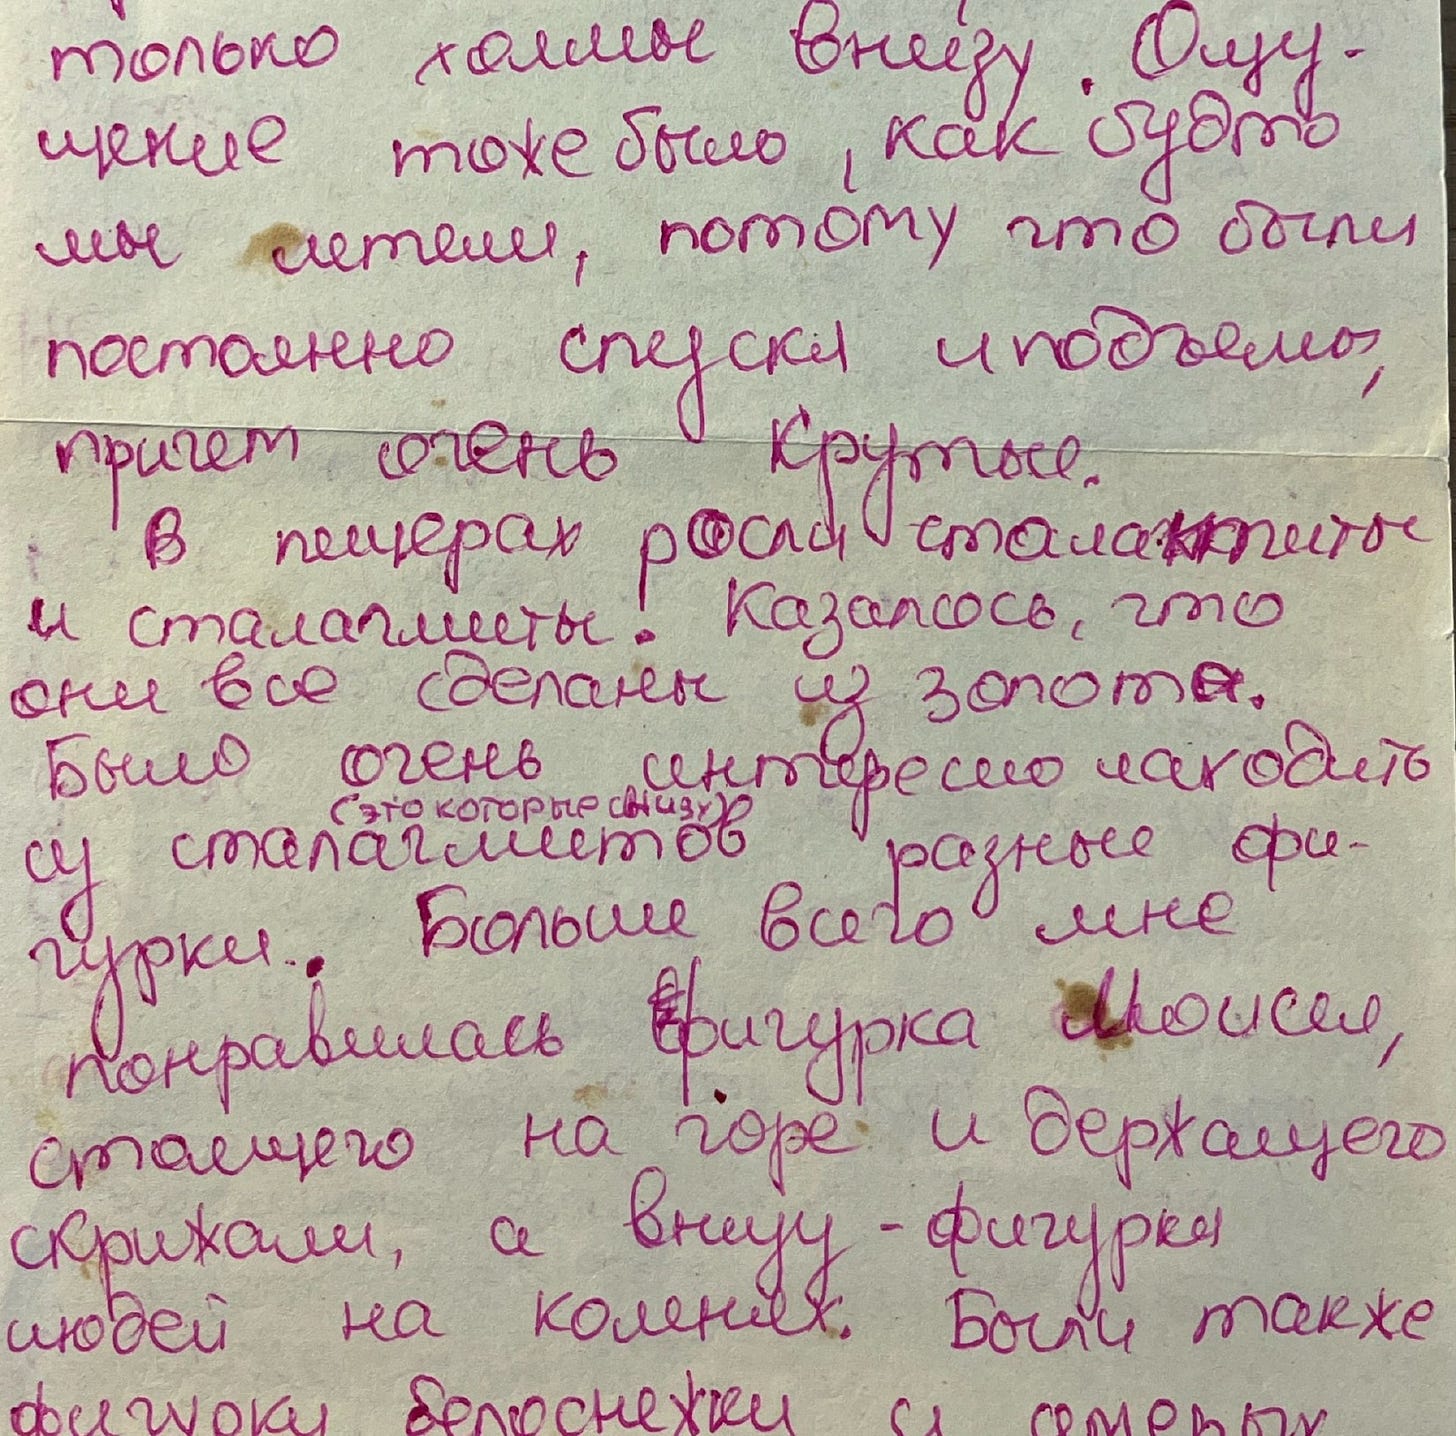 только холмы внизу. Ощу-
щение тоже было, как будто
мы летели, потому что были
постоянно спуски и подъемы,
причем очень крутые.
В пещерах росли сталактиты
и сталагмиты. Казалось, что
они все сделаны из золота.
Было очень интересно находить
(это которые снизу)
из сталагмитов разные фи-
гурки. Больше всего мне
понравилась фигурка Моисея,
стоящего на горе и держащего
скрижали, а внизу - фигурки
людей на коленях. Были также
фигурки белоснежки и семерых